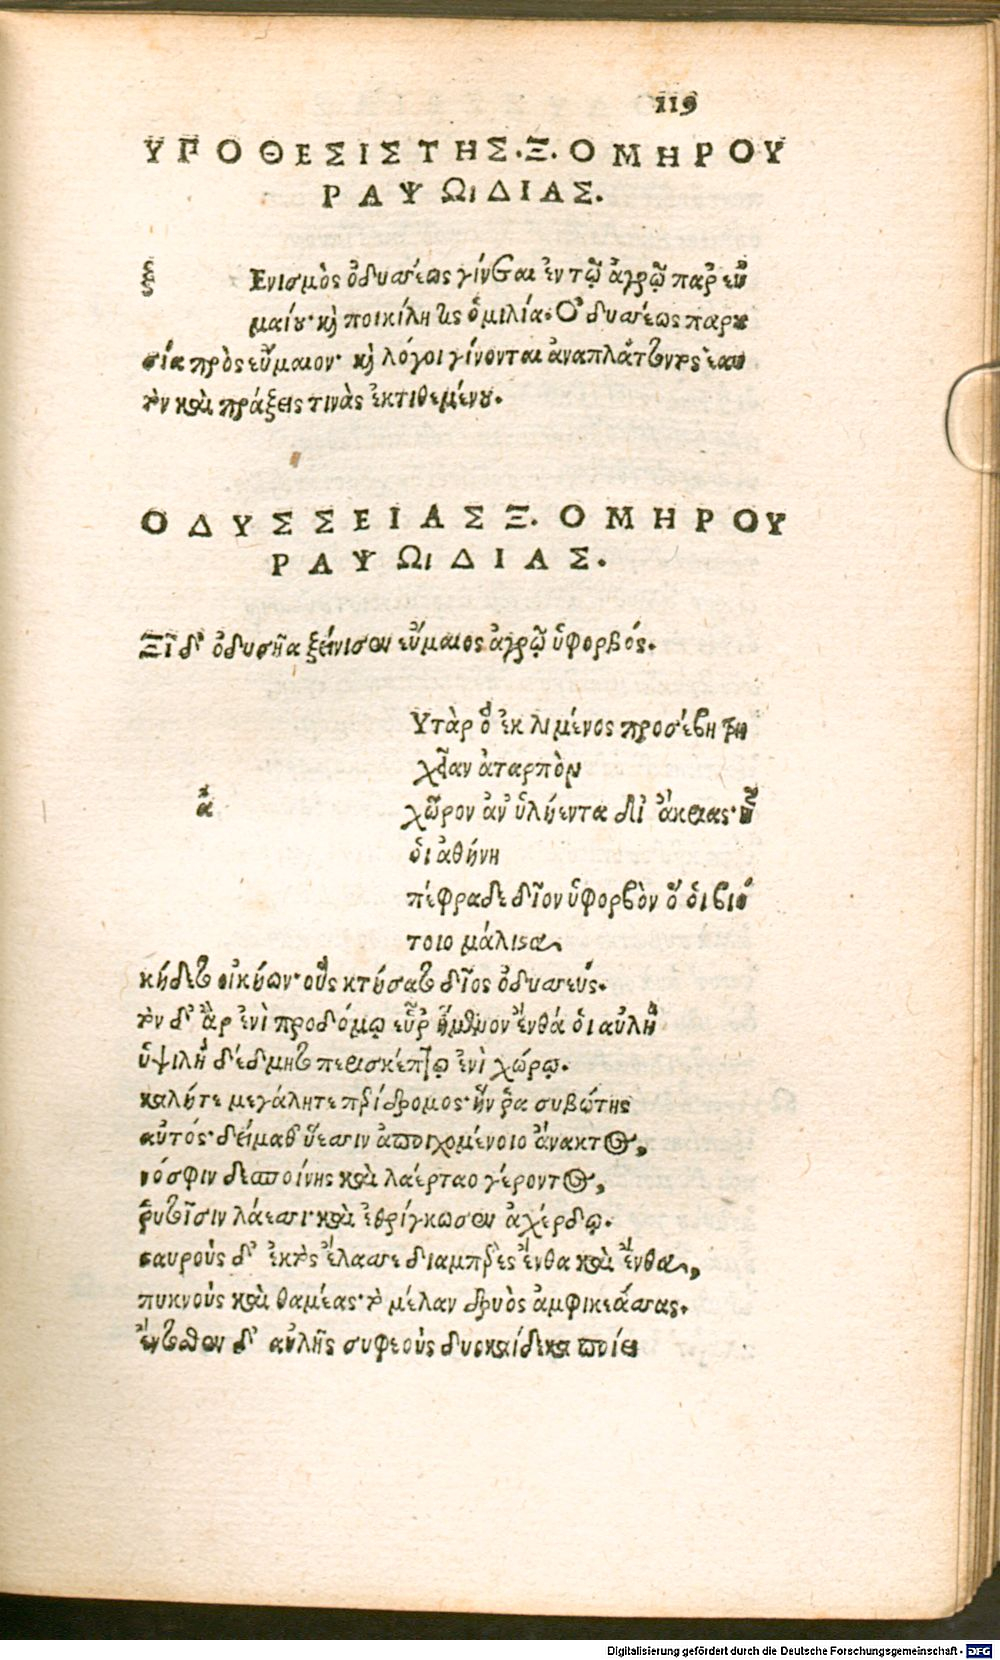 119
ΥΠΟΘΕΣΙΣ ΤΗΣ .Ξ. ΟΜΗΡΟΥ
ΡΑΨΩΙΔΙΑΣ.
ξ Ενισμὸς ὀδυσσέως γίνεται ἐν τῷ ἀγρῷ παρ' εὐ
μαίου· καὶ ποικίλη τις ὁμιλία. Ὀδυσσέως παρου
σία πρὸς εὔμαιον· καὶ λόγοι γίνονται ἀναπλάττοντος ἑαυ
τὸν καὶ πράξεις τινὰς ἐκτιθεμένου.
ΟΔΥΣΣΕΙΑΣ Ξ. ΟΜΗΡΟΥ
ΡΑΨΩΙΔΙΑΣ.
Ξῖ δ' ὀδυσῆα ξείνισεν εὔμαιος ἀγρῷ ὑφορβός.
Υτὰρ ὁ ἐκ λιμένος προσέβη τρη
χεῖαν ἀταρπὸν
ἀ χῶρον ἀν' ὑλήεντα δι' ἄκριας· ᾗ
ὁι ἀθήνη
πέφραδε δῖον ὑφορβὸν ὅ ὁι βιό
τοιο μάλιστα
κήδετο οἰκήων· οὓς κτήσατο δῖος ὀδυσσεύς.
τὸν δ' ἂρ ἐνὶ προδόμῳ εὗρ' ἥμενον ἔνθά ὁι αὐλὴ
ὑψιλὴ δέδμητο περισκέπτῳ ἐνὶ χώρῳ.
καλήτε μεγάλητε περίδρομος· ἥν ῥα συβώτης
αὐτός· δείμαθ' ὕεσσιν ἀποιχομένοιο ἄνακτος,
νόσφιν δεσποίνης καὶ λαέρταο γέροντος,
ῥυτοῖσιν λάεσσι· καὶ ἐθρίγκωσεν ἀχέρδῳ.
σαυροὺς δ' ἐκτὸς ἔλασσε διαμπερὲς ἔνθα καὶ ἔνθα,
πυκνοὺς καὶ θαμέας· τὸ μέλαν δρυὸς ἀμφικεάσσας.
ἔντοσθεν δ' αὐλῆς συφεοὺς δυοκαίδεκα ποίει
Digitalisierung gefördert durch die Deutsche Forschungsgemeinschaft - DFG